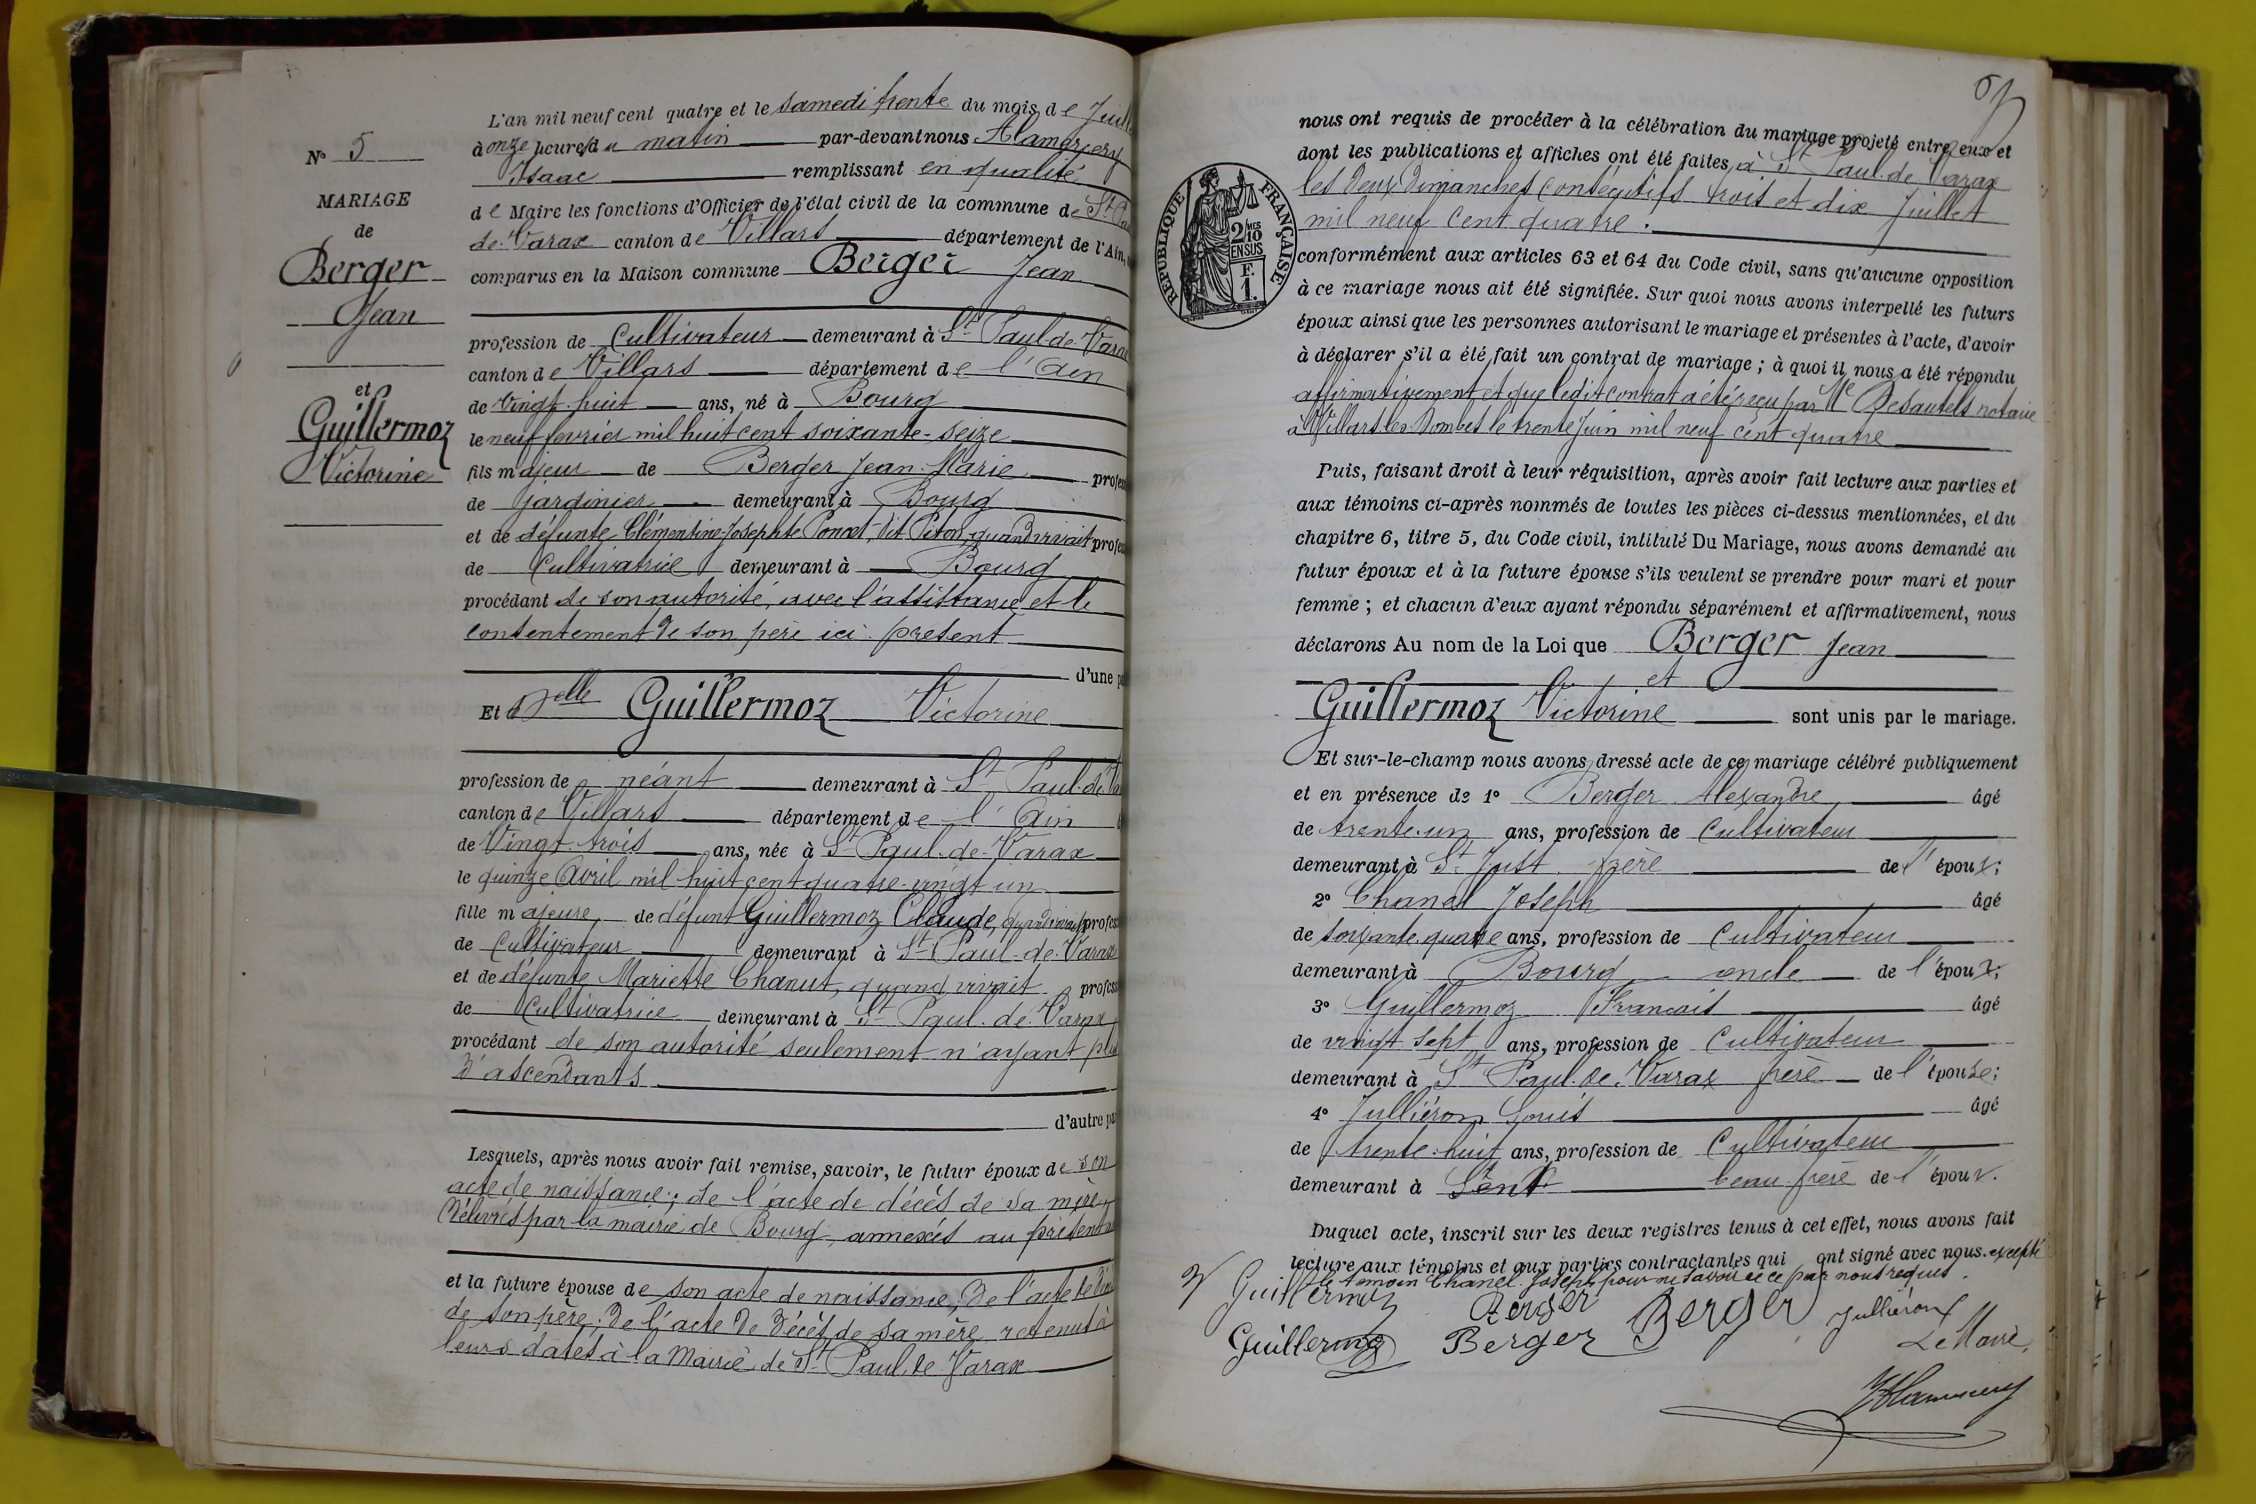 N° 5
MARIAGE
de
Berger
Jean
et
Guillermoz
Victorine
L'an mil neuf cent quatre et le samedi trente du mois de Juill
à onze heures du matin par-devant nous Alamercery
Isaac remplissant en qualité
de Maire les fonctions d'Officier de l'état civil de la commune de St
de Varax canton de Villars département de l'Ain,
comparus en la Maison commune Berger Jean
profession de Cultivateur demeurant à St Paul-de-Varax
canton de Villars département de l'Ain
de Vingt-huit ans, né à Bourg
le neuf février mil huit cent soixante-seize
fils majeur de Berger Jean-Marie profes
de Jardinier demeurant à Bourg
et de défunte Clémentine-Josephte Poncet dit Piton, quand vivait profes
de Cultivatrice demeurant à Bourg
procédant de son autorité, avec l'assistance et le
consentement de son père ici présent
d'une p
Et Delle Guillermoz Victorine
profession de néant demeurant à St Paul-de-Va
canton de Villars département de l'Ain
de Vingt-trois ans, née à St Paul-de-Varax
le quinze Avril mil huit cent quatre-vingt-un
fille majeure, de défunt Guillermoz Claude, quand vivait profes
de Cultivateur demeurant à St Paul-de-Varax
et de défunte Mariette Chanut, quand vivait profess
de Cultivatrice demeurant à St Paul-de-Varax
procédant de son autorité seulement n'ayant plus
d'ascendants
d'autre pa
Lesquels, après nous avoir fait remise, savoir, le futur époux de son
acte de naissance; de l'acte de décès de sa mère,
délivrés par la mairie de Bourg, annexés au présent
et la future épouse de son acte de naissance, de l'acte de
de son père. De l'acte de décès de sa mère retenus à
leurs dates à la Mairie de St Paul de Varax
nous ont requis de procéder à la célébration du mariage projeté entre eux et
dont les publications et affiches ont été faites, à St Paul-de-Varax
les deux Dimanches consécutifs trois et dix Juillet
mil neuf cent quatre.
RÉPUBLIQUE FRANÇAISE
2/10 MES
EN SUS
F.
1.
conformément aux articles 63 et 64 du Code civil, sans qu'aucune opposition
à ce mariage nous ait été signifiée. Sur quoi nous avons interpellé les futurs
époux ainsi que les personnes autorisant le mariage et présentes à l'acte, d'avoir
à déclarer s'il a été fait un contrat de mariage; à quoi il nous a été répondu
affirmativement et que ledit contrat a été reçu par Me Desautels notaire
à Villars les Dombes le trente Juin mil neuf cent quatre
Puis, faisant droit à leur réquisition, après avoir fait lecture aux parties et
aux témoins ci-après nommés de toutes les pièces ci-dessus mentionnées, et du
chapitre 6, titre 5, du Code civil, intitulé Du Mariage, nous avons demandé au
futur époux et à la future épouse s'ils veulent se prendre pour mari et pour
femme; et chacun d'eux ayant répondu séparément et affirmativement, nous
déclarons Au nom de la Loi que Berger Jean
et
Guillermoz Victorine sont unis par le mariage.
Et sur-le-champ nous avons dressé acte de ce mariage célébré publiquement
et en présence de 1° Berger Alexandre âgé
de trente-un ans, profession de Cultivateur
demeurant à St Just frère de l'époux;
2° Chanel Joseph âgé
de soixante-quatre ans, profession de Cultivateur
demeurant à Bourg oncle de l'époux;
3° Guillermoz François âgé
de vingt sept ans, profession de Cultivateur
demeurant à St Paul-de-Varax frère de l'épouse;
4° Julliéron Louis âgé
de trente-huit ans, profession de Cultivateur
demeurant à beau-frère de l'époux.
Duquel acte, inscrit sur les deux registres tenus à cet effet, nous avons fait
lecture aux témoins et aux parties contractantes qui ont signé avec nous. excepté
le témoin Chanel Joseph pour ne savoir de ce par nous requis.
V Guillermoz Berger Berger Julliéron
Guillermoz Berger Le Maire,
IAlamercery